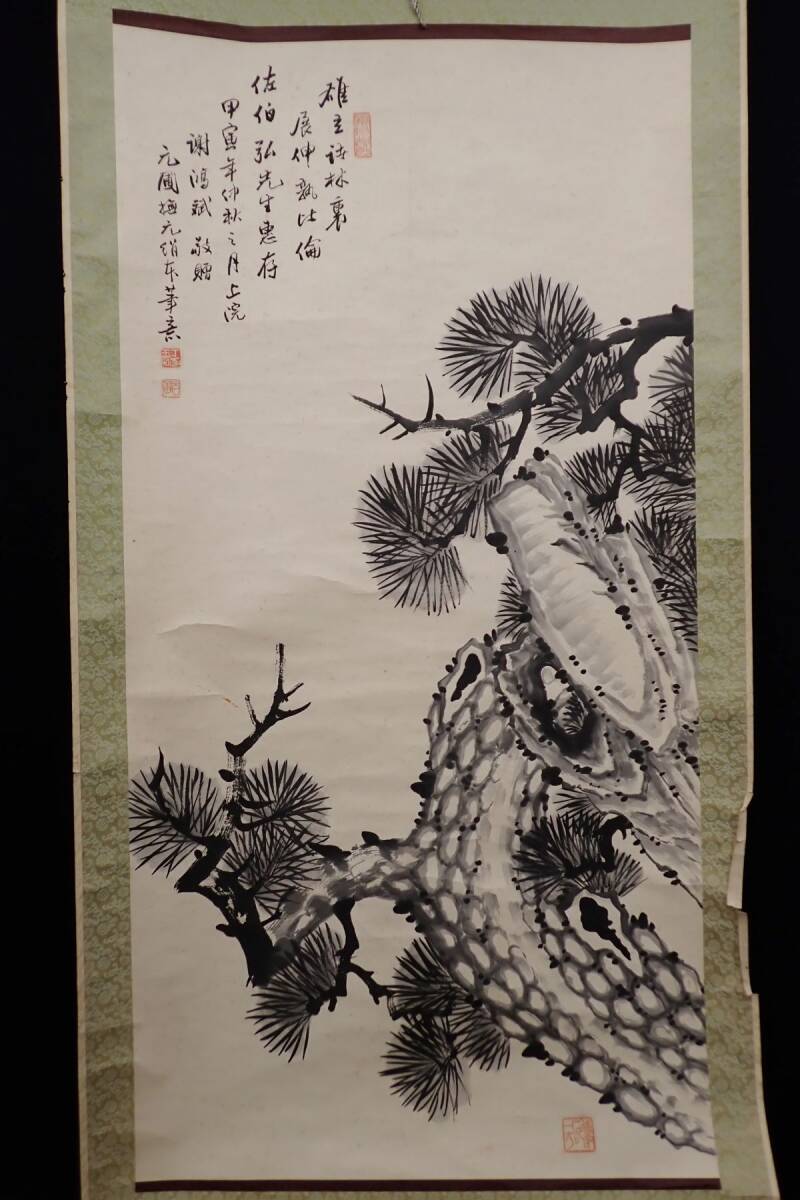 雄立詩林裏
展伸孰比倫
佐伯弘先生惠存
甲寅年仲秋之月上浣
謝鴻斌敬贈
元圃梅元 筆意